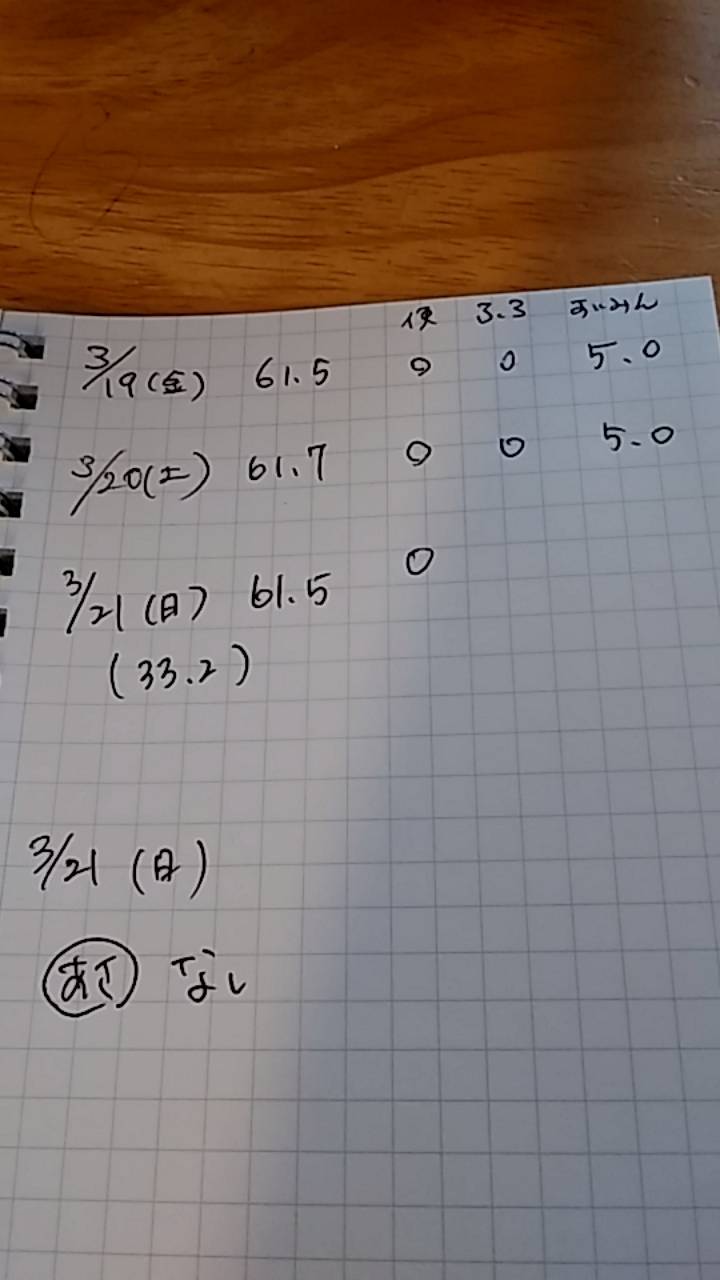 便 3.3 すいみん
3/19(金) 61.5 0 0 5.0
3/20(土) 61.7 0 0 5.0
3/21(日) 61.5 0
(33.2)
3/21(日)
あさ なし